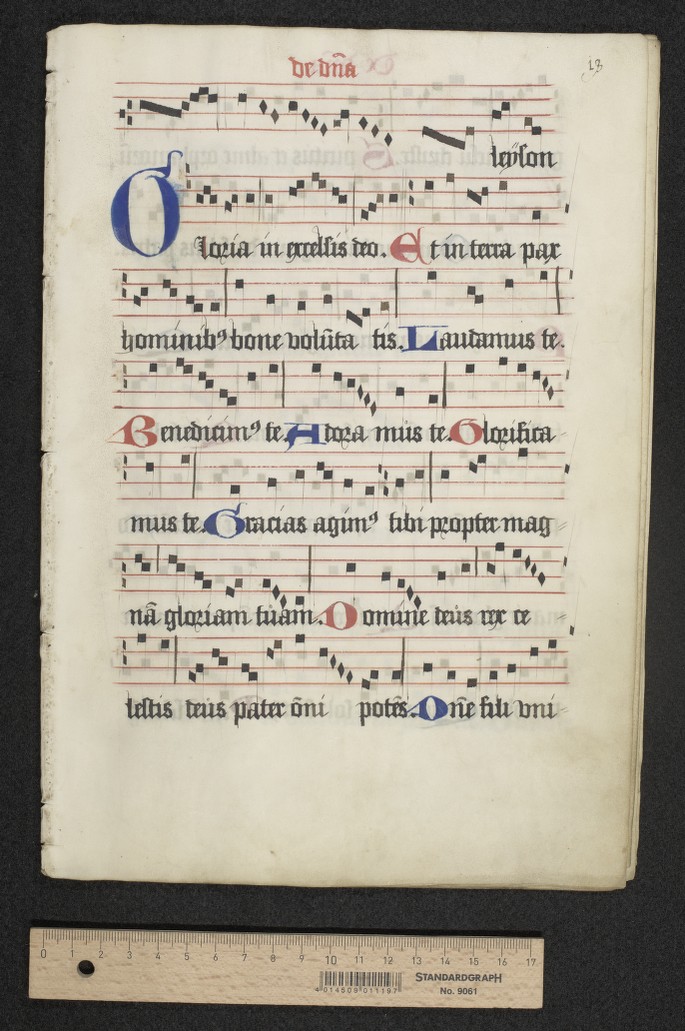 de dn̄a
18
leyſon
Gloria in excelſis deo. Et in terra pax
hominibꝰ bone volūta tis. Laudamus te.
Benedicimꝰ te. Adora mus te. Glorifica
mus te. Gracias agimꝰ tibi propter mag
nā gloriam tuam. Domine deus rex ce
leſtis deus pater ōni potēs. Dn̄e fili vni
0 1 2 3 4 5 6 7 8 9 10 11 12 13 14 15 16 17
4 014509 011197
STANDARDGRAPH
No. 9061